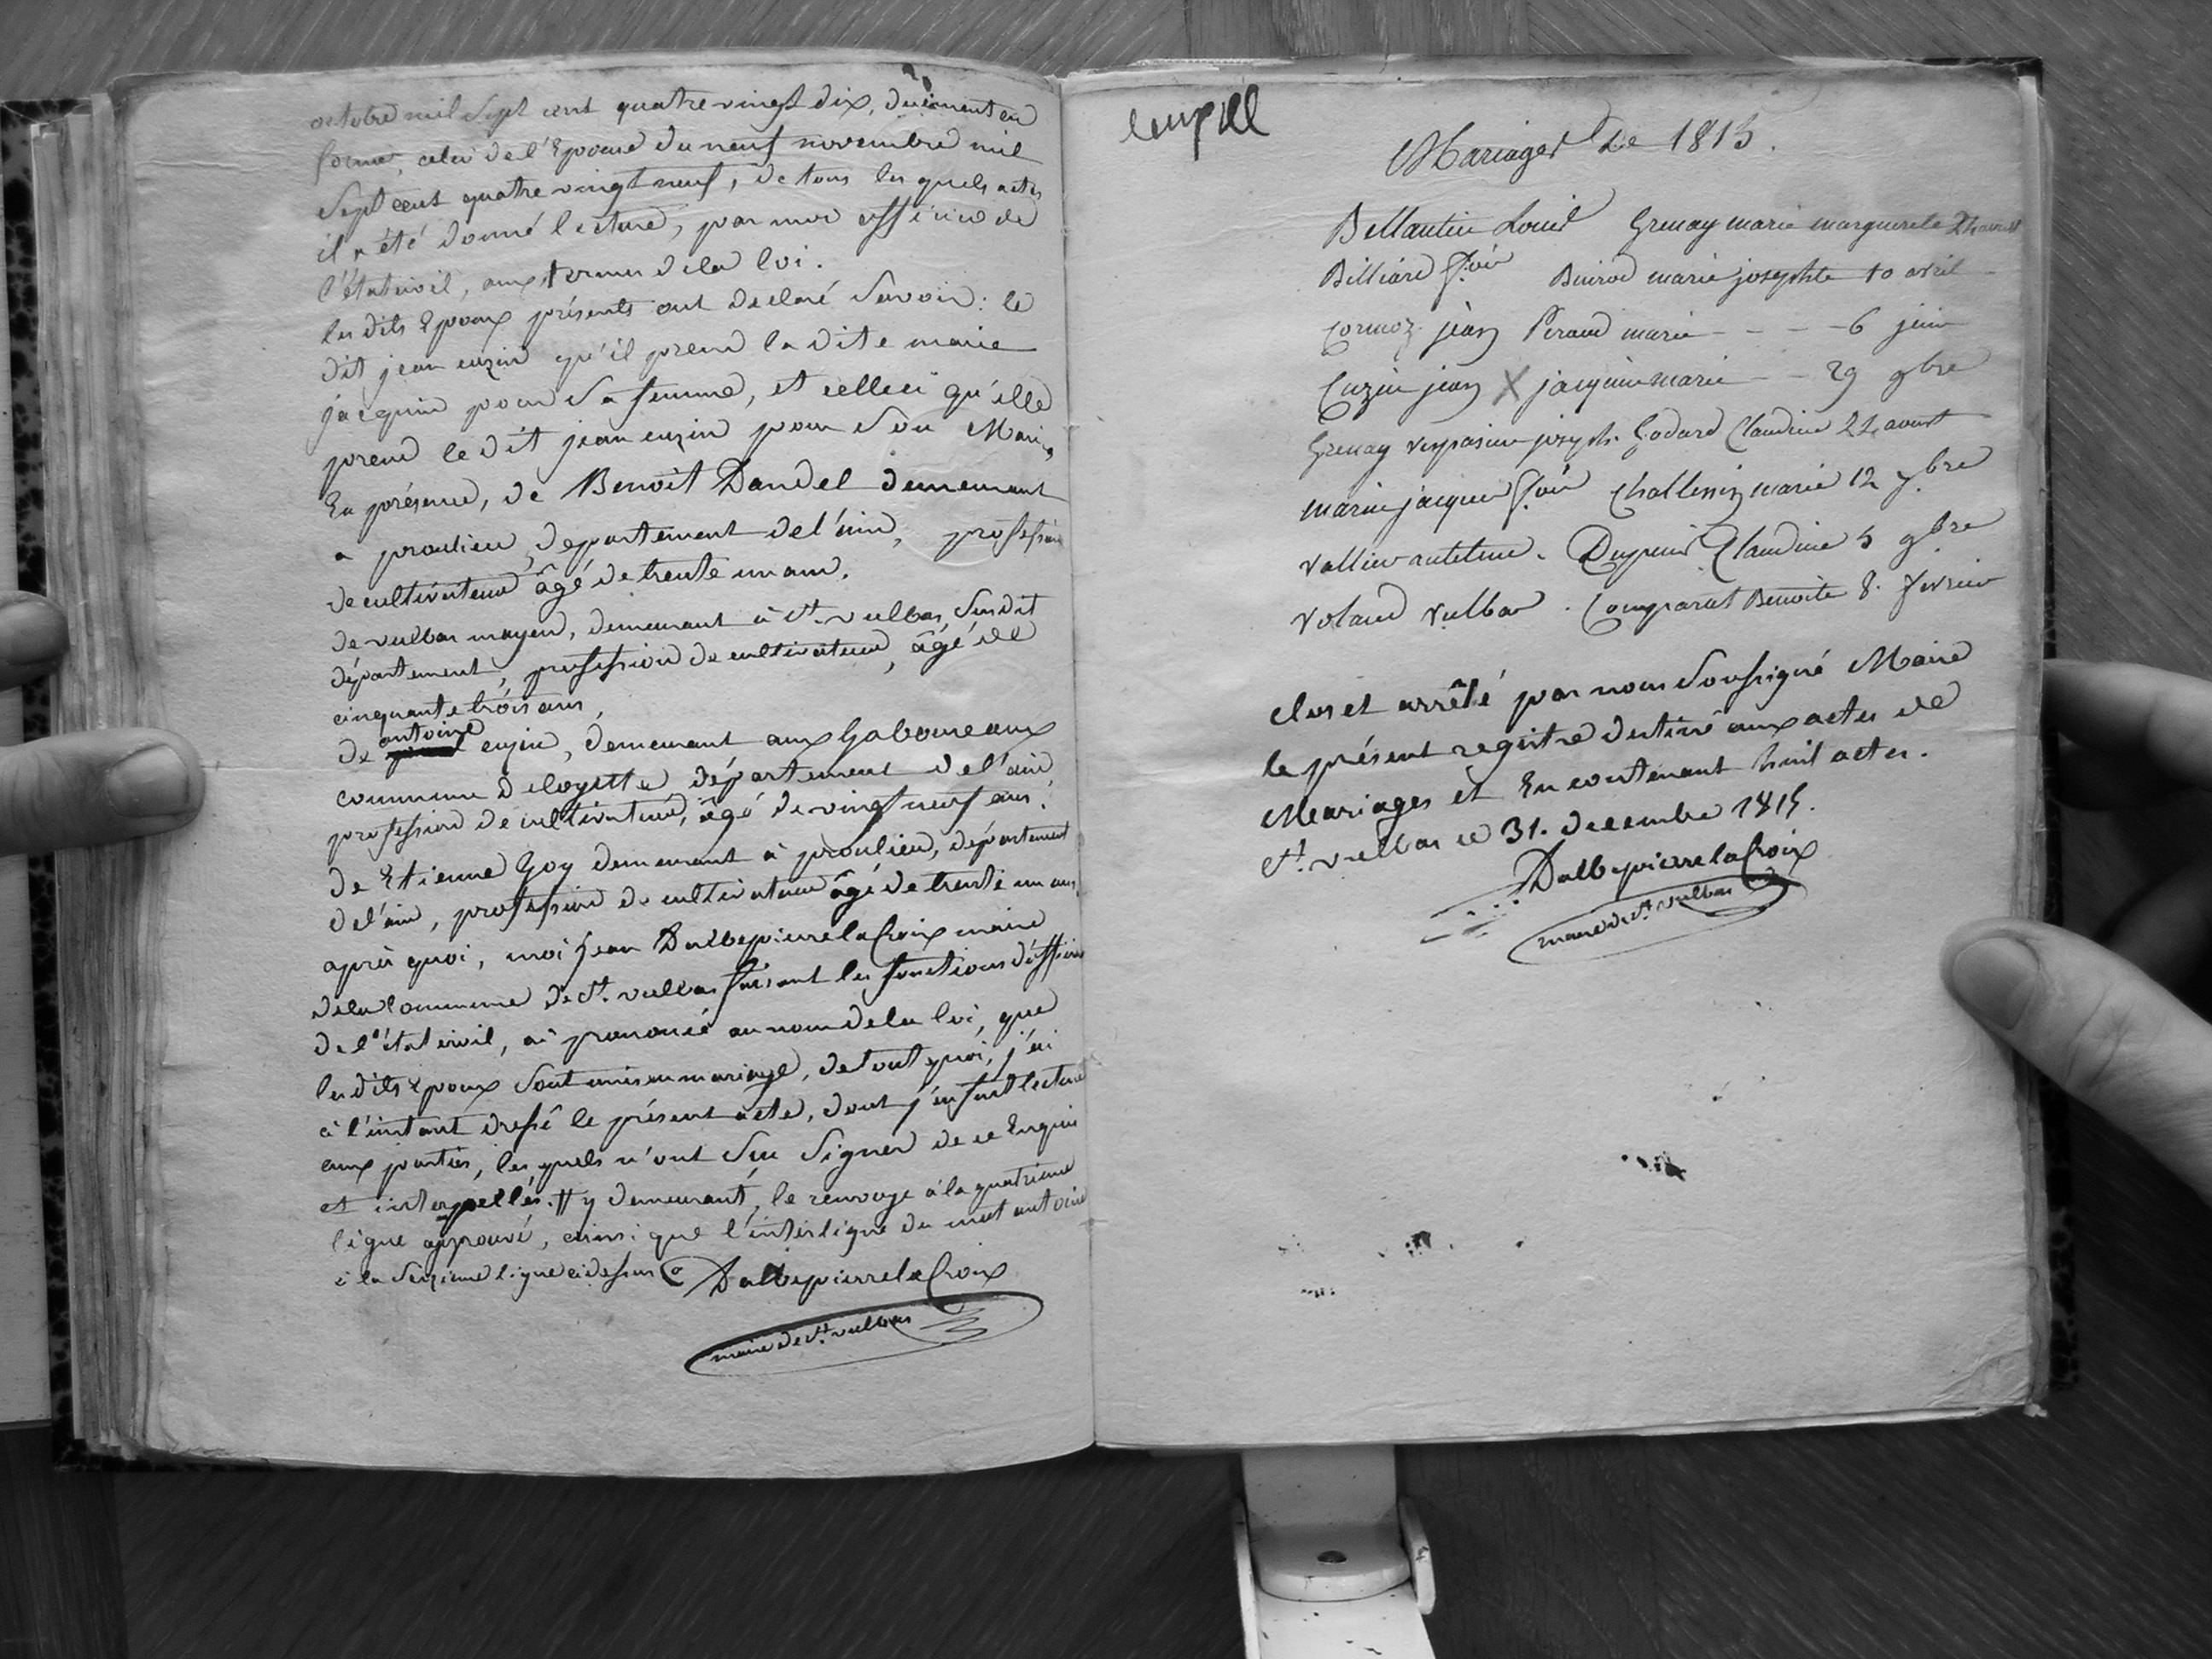 octobre mil sept cent quatre vingt dix, duement en
forme, celui de l'Epouse du neuf novembre mil
sept cent quatre vingt neuf, de tous les quels actes
il a été donné lecture, par moi officier de
l'état civil, aux termes de la loi.
les dits Epoux présents ont déclaré savoir: le
dit jean cuzin qu'il prend la dite marie
jacquin pour sa femme, et celle ci qu'elle
prend le dit jean cuzin pour son Mari,
En présence, de Benoît Dandel demeurant
a proulieu, département de l'ain, profession
de cultivateur âgé de trente un ans.
de vulbas mayeu, demeurant à St. vulbas, susdit
département, profession de cultivateur, âgé de
cinquante trois ans,
antoine
de cuzin, demeurant aux Gaboureaux
commune de loyette département de l'ain
profession de cultivateur, âgé de vingt neuf ans.
de Etienne Goy demeurant à proulieu, département
de l'ain, profession de cultivateur âgé de trente un ans,
après quoi, moi jean Dalbepierre la Croix maire
de la commune de St. vulbas faisant les fonctions d'officier
de l'état civil, ai prononcé au nom de la loi, que
les dits Epoux sont unis en mariage, de tout quoi, j'ai
à l'instant dressé le présent acte, dont j'ai fait lecture
aux parties, les quels n'ont su signer de ce Enquis
et interpellés. # y demeurant, le renvoye à la quatrieme
ligne approuvé, ainsi que l'interligne du mot antoine
à la seizieme ligne ci dessus Dalbepierre la Croix
maire de St. vulbas
Mariages de 1815.
Bellantin Louis Grenay marie marguerite
Billiard Buirod marie josephte 10 avril
Cormoz jean Peraud marie - - - 6 juin
Cuzin jean X jacquin marie - - 29 9bre
Grenay vespasien joseph. Godard Claudine 22 aoust
marin jacques marie 12 7bre
vallier antelme. Dupuis Claudine 5 9bre
volaud vulbas. Comparat Benoite 8. fevrier
clos et arrêté par nous soussigné Maire
le présent registre destiné aux actes de
Mariages et En contenant huit actes.
St. vulbas ce 31. decembre 1815.
Dalbepierre la Croix
maire de St. vulbas